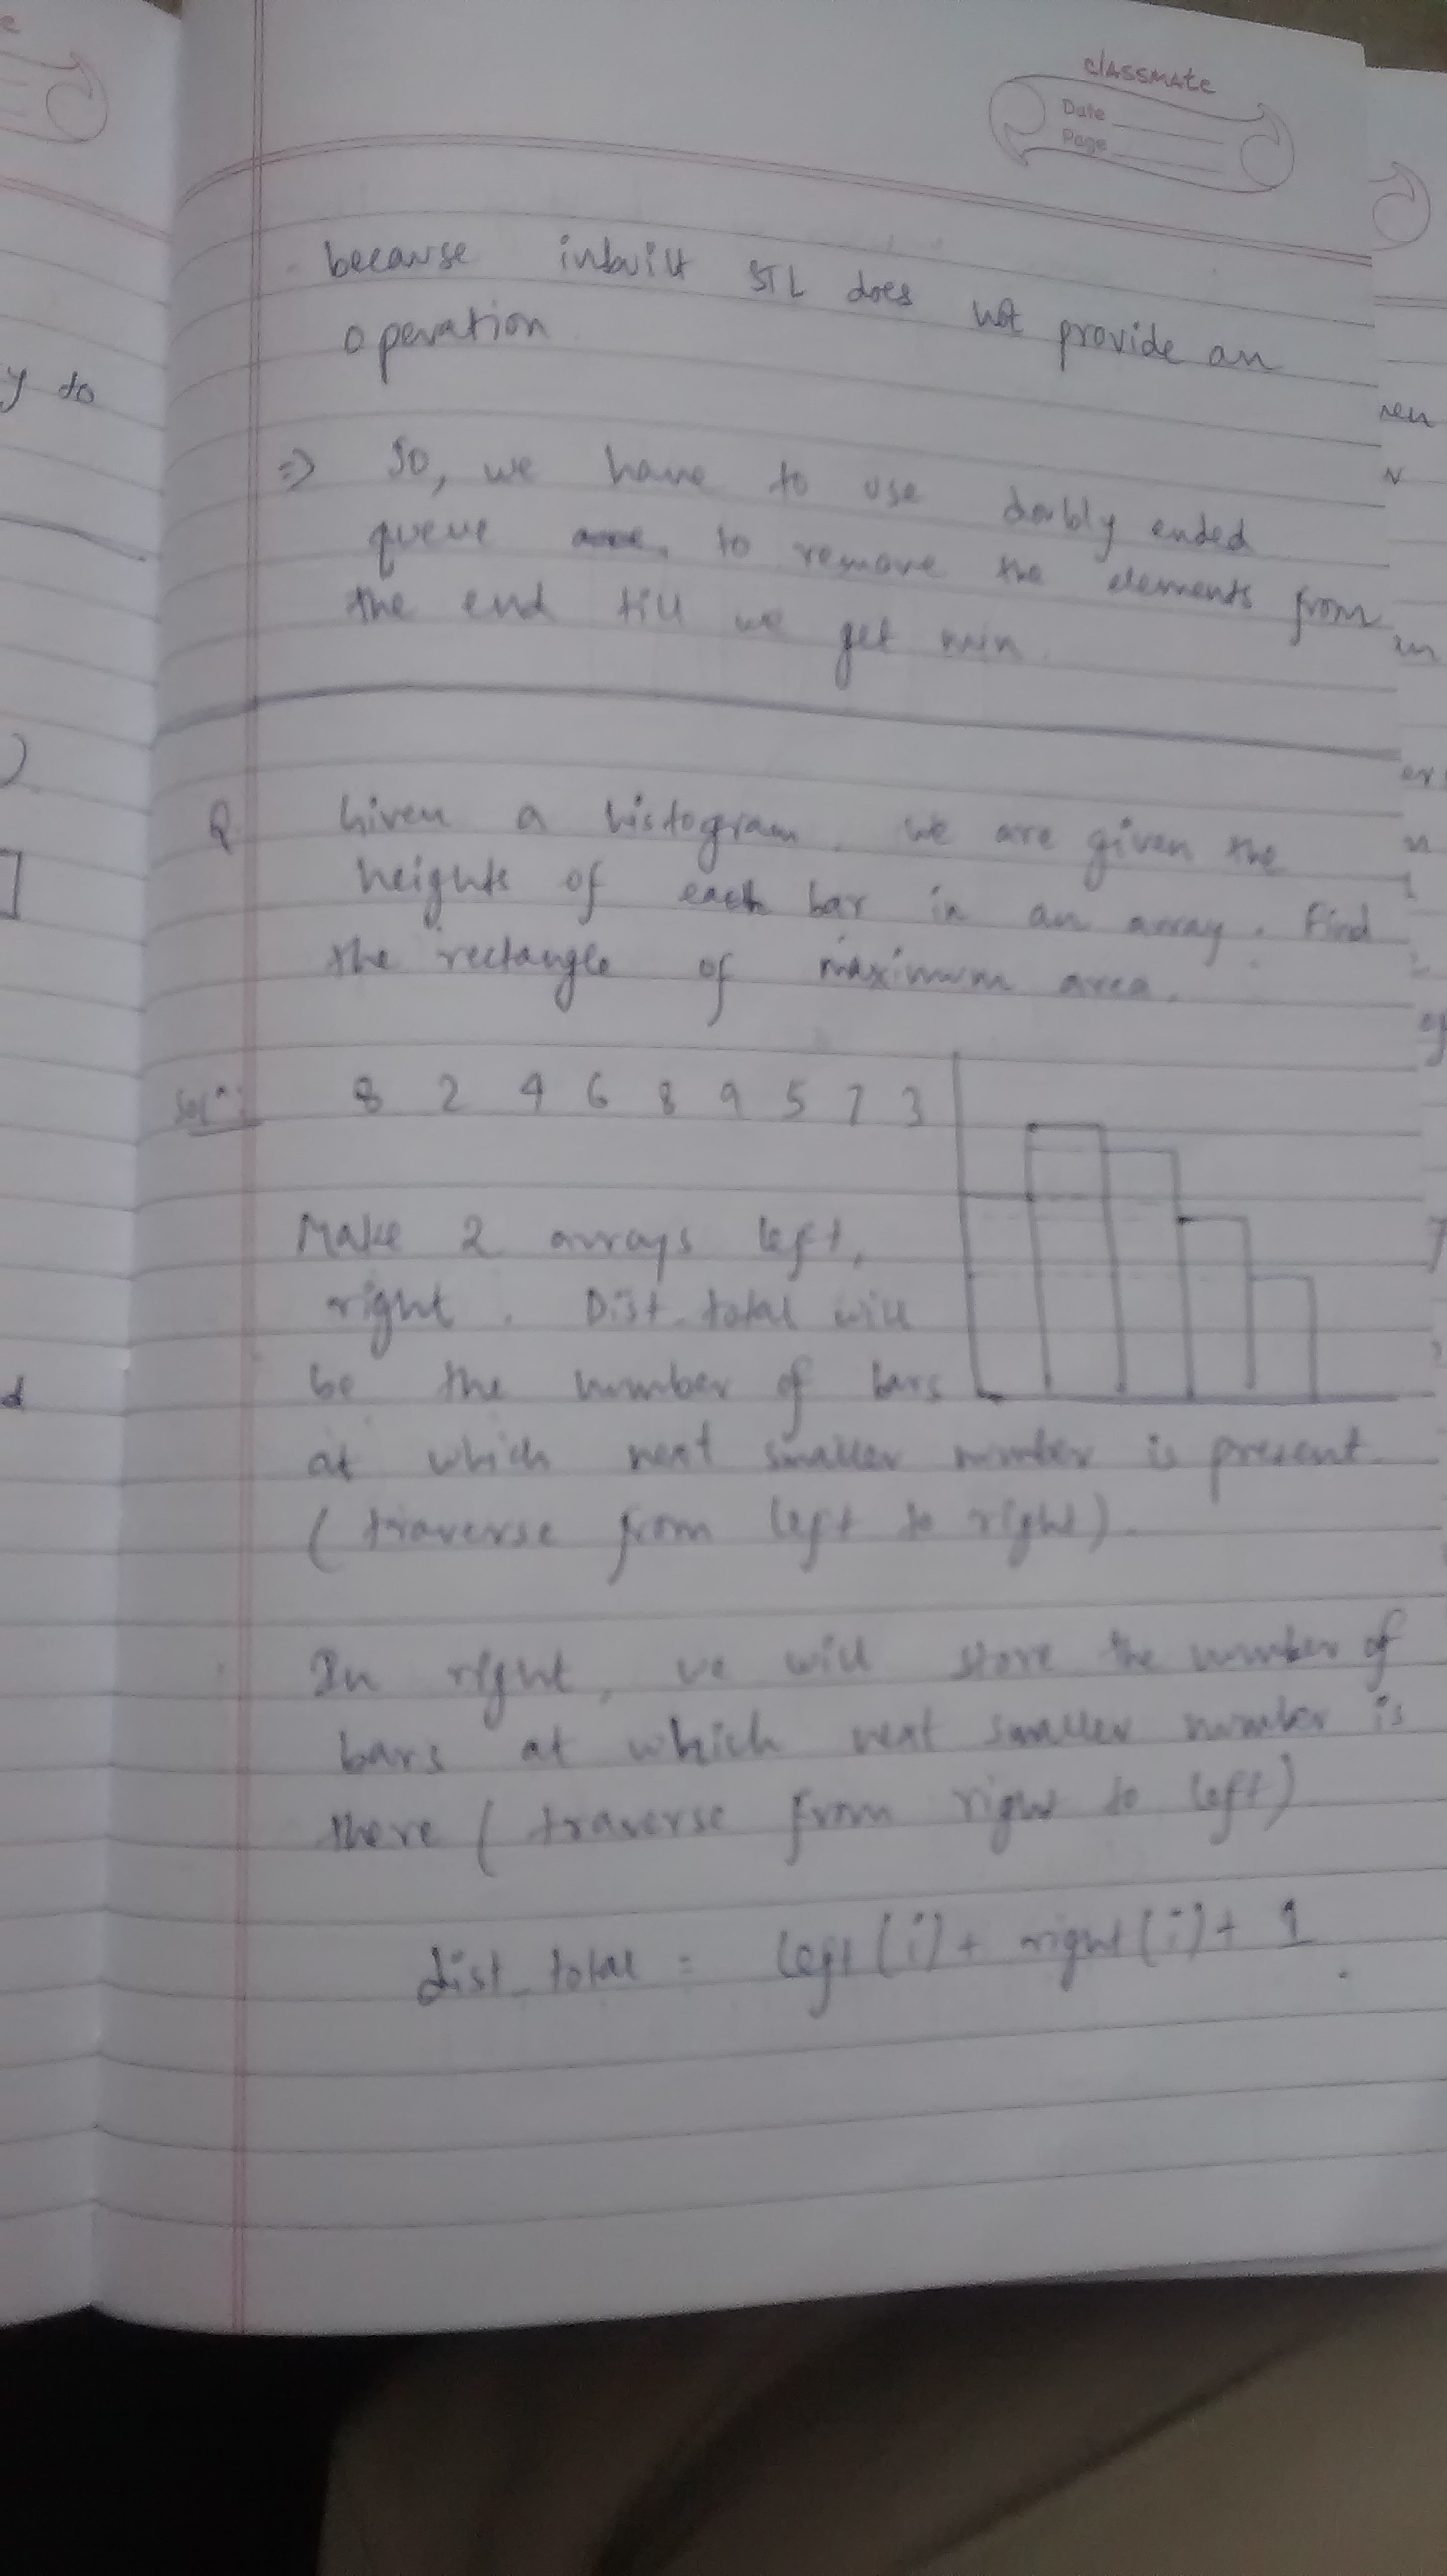 classmate
Date
Page
because inbuilt STL does not provide an
operation.
=> So, we have to use doubly ended
queue to remove the elements from
the end till we get min.
Q Given a histogram, we are given the
heights of each bar in an array. Find
the rectangle of maximum area.
Solⁿ: 8 2 4 6 8 9 5 7 3
Make 2 arrays left,
right. Dist_total will
be the number of bars
at which next smaller number is present
(traverse from left to right).
In right, we will store the number of
bars at which next smaller number is
there (traverse from right to left)
dist_total = left(i) + right(i) + 1
y to
d